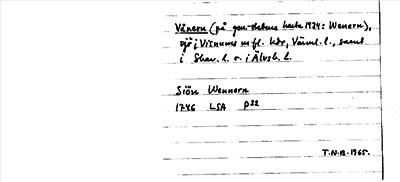 Vänern (på gen.stabens karta 1934: Wenern),
sjö i Visnums m.fl. hdr, Värml. l., samt
i Skar. l. o. i Älvsb. l.
Siön Wennern
1746 LSA P32
T.N.B. 1965.